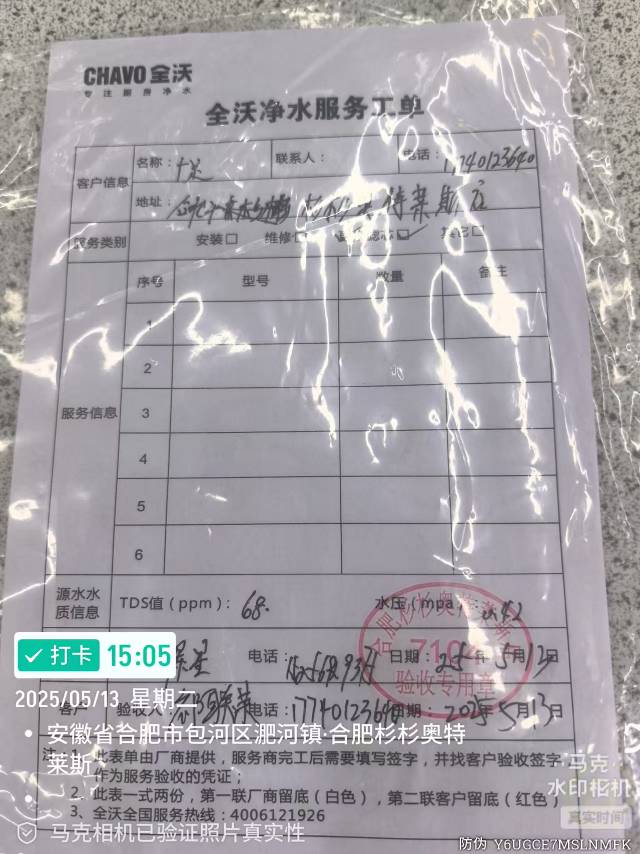 CHAVO 全沃
专注厨房净水
全沃净水服务工单
客户信息
名称：
联系人：
电话：17740123640
地址：
莱斯店
服务类别
安装□ 维修□ 其它□
服务信息
序号 型号 数量 备注
1
2
3
4
5
6
源水水质信息
TDS值（ppm）：68.
水压（mpa
合肥杉杉奥特莱斯
验收专用章
电话：
日期：25年5月13
客户
验收人
电话：17740123640
日期：2025年5月13日
注：1、此表单由厂商提供，服务商完工后需要填写签字，并找客户验收签字，
作为服务验收的凭证；
2、此表一式两份，第一联厂商留底（白色），第二联客户留底（红色）
3、全沃全国服务热线：4006121926
打卡 15:05
2025/05/13 星期二
安徽省合肥市包河区淝河镇·合肥杉杉奥特
莱斯
马克相机已验证照片真实性
马克
水印相机
真实时间
防伪 Y6UGCE7MSLNMFK